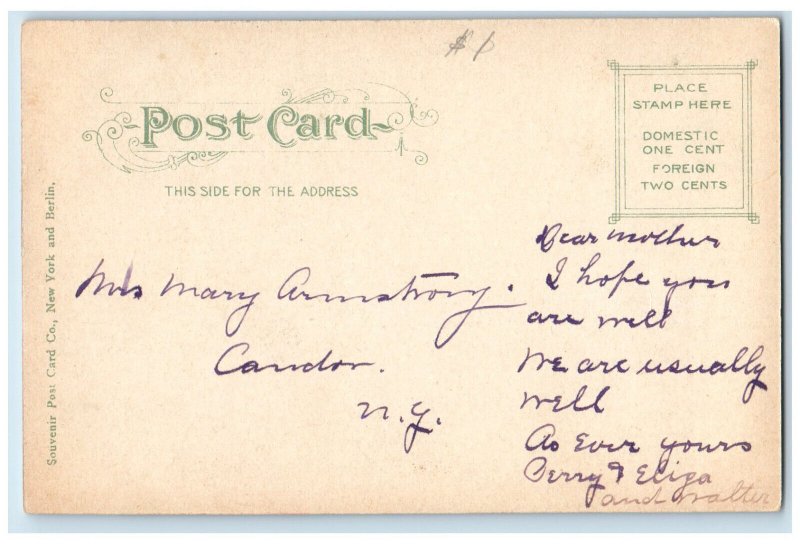 $1
Post Card
THIS SIDE FOR THE ADDRESS
PLACE
STAMP HERE
DOMESTIC
ONE CENT
FOREIGN
TWO CENTS
Souvenir Post Card Co., New York and Berlin.
Mrs Mary Armstrong.
Candor.
N.Y.
Dear Mother
I hope you
are well
We are usually
well
As Ever yours
Perry & Eliza
and Walter